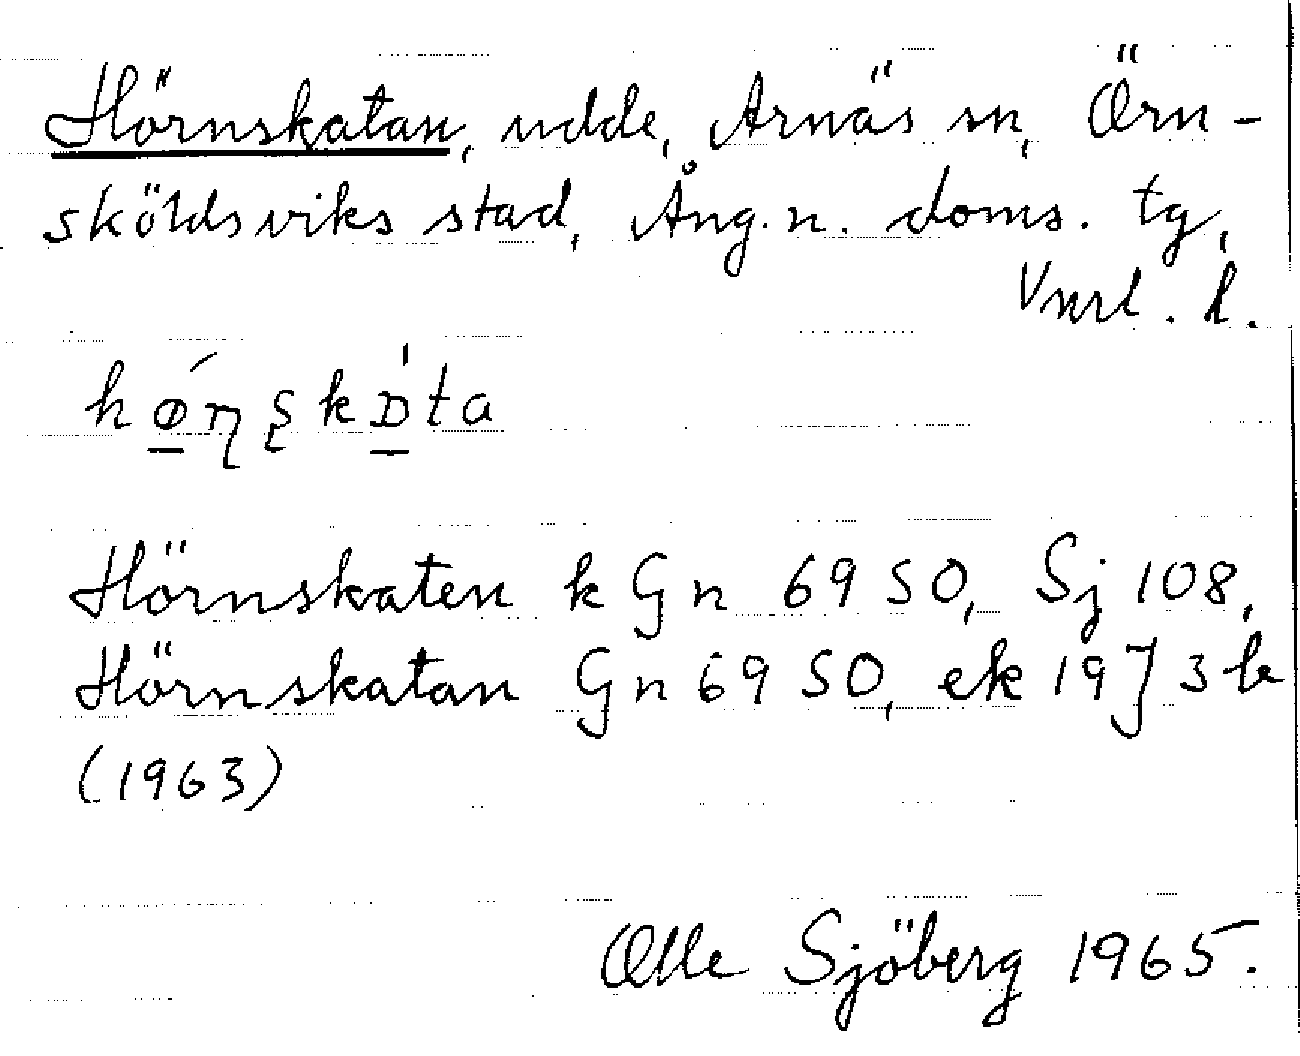 Hörnskatan, udde, Arnäs sn, Örn-
sköldsviks stad, Ång. n. doms. tg,
Vnrl. l.
Hörnskaten k Gn 69 SO, Sj 108,
Hörnskatan Gn 69 SO, ek 19J3b
(1963)
Olle Sjöberg 1965.